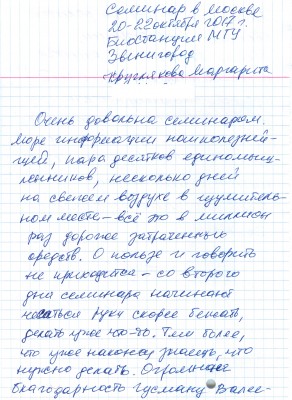 Семинар в Москве
20-22 октября 2017 г.
Биостанция МГУ
Звенигород
Круглякова Маргарита
Очень довольна семинаром.
Море информации наиполезней-
шей, пара десятков единомыш-
ленников, несколько дней
на свежем воздухе в изумитель-
ном месте - всё это в миллион
раз дороже затраченных
средств. О пользе и говорить
не приходится - со второго
дня семинара начинают
чесаться руки скорее бежать,
делать уже что-то. Тем более,
что уже наконец знаешь, что
нужно делать. Огромная
благодарность Гусману Валее-